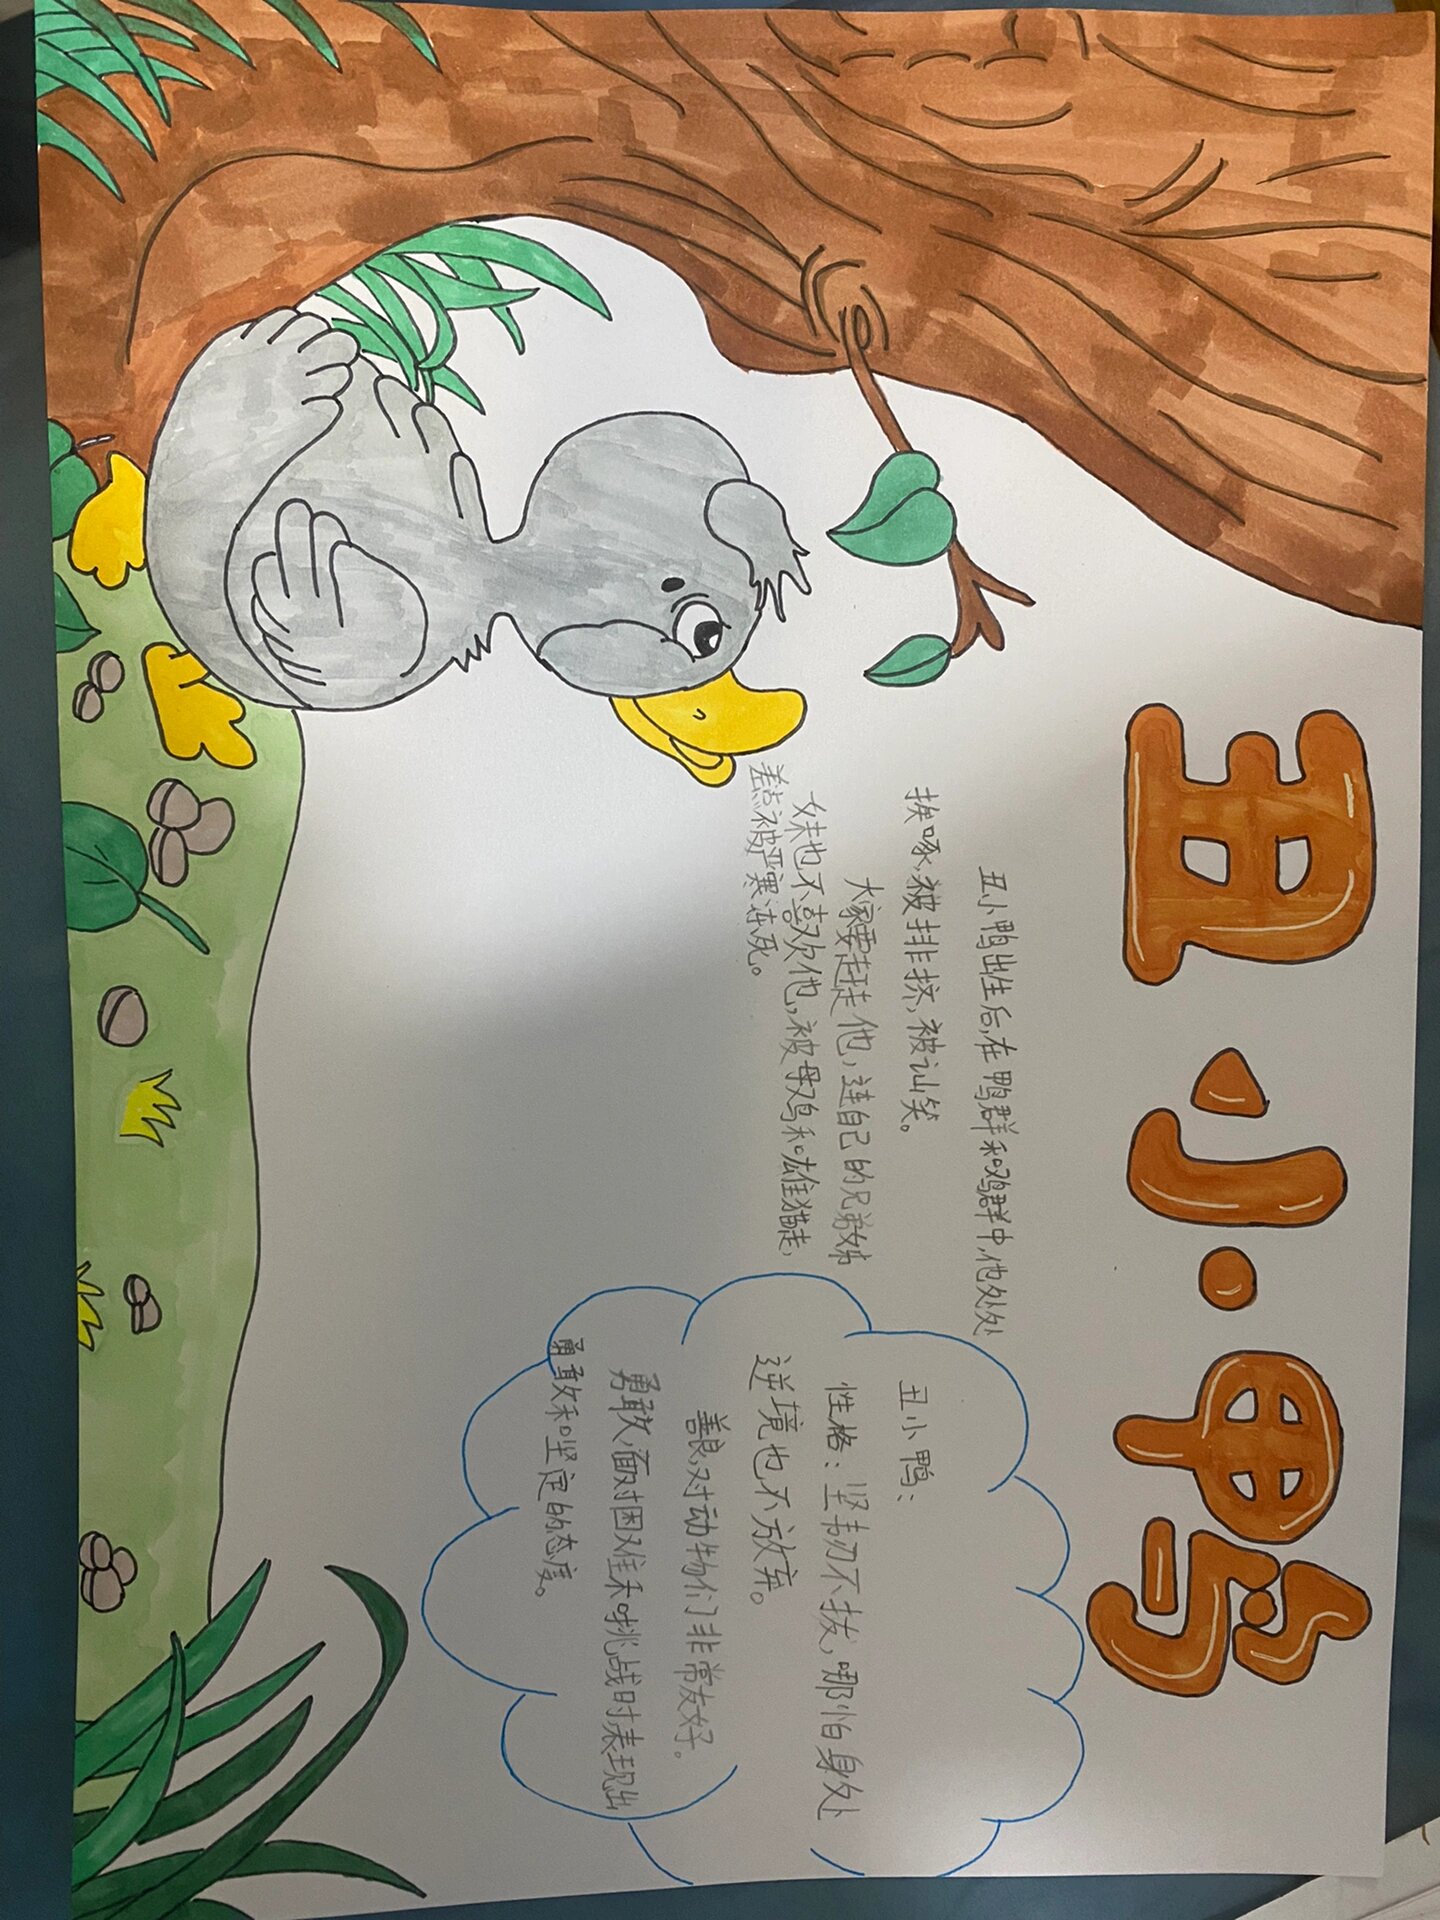 丑小鸭
丑小鸭出生后,在鸭群和鸡群中,他处处
挨啄,被排挤,被讪笑。
大家要赶走他,连自己的兄弟姊
妹也不喜欢他,被母鸡和雄猫赶走,
差点被严寒冻死。
丑小鸭:
性格:坚韧不拔,哪怕身处
逆境也不放弃。
善良,对动物们非常友好。
勇敢,面对困难和挑战时表现出
勇敢和坚定的态度。